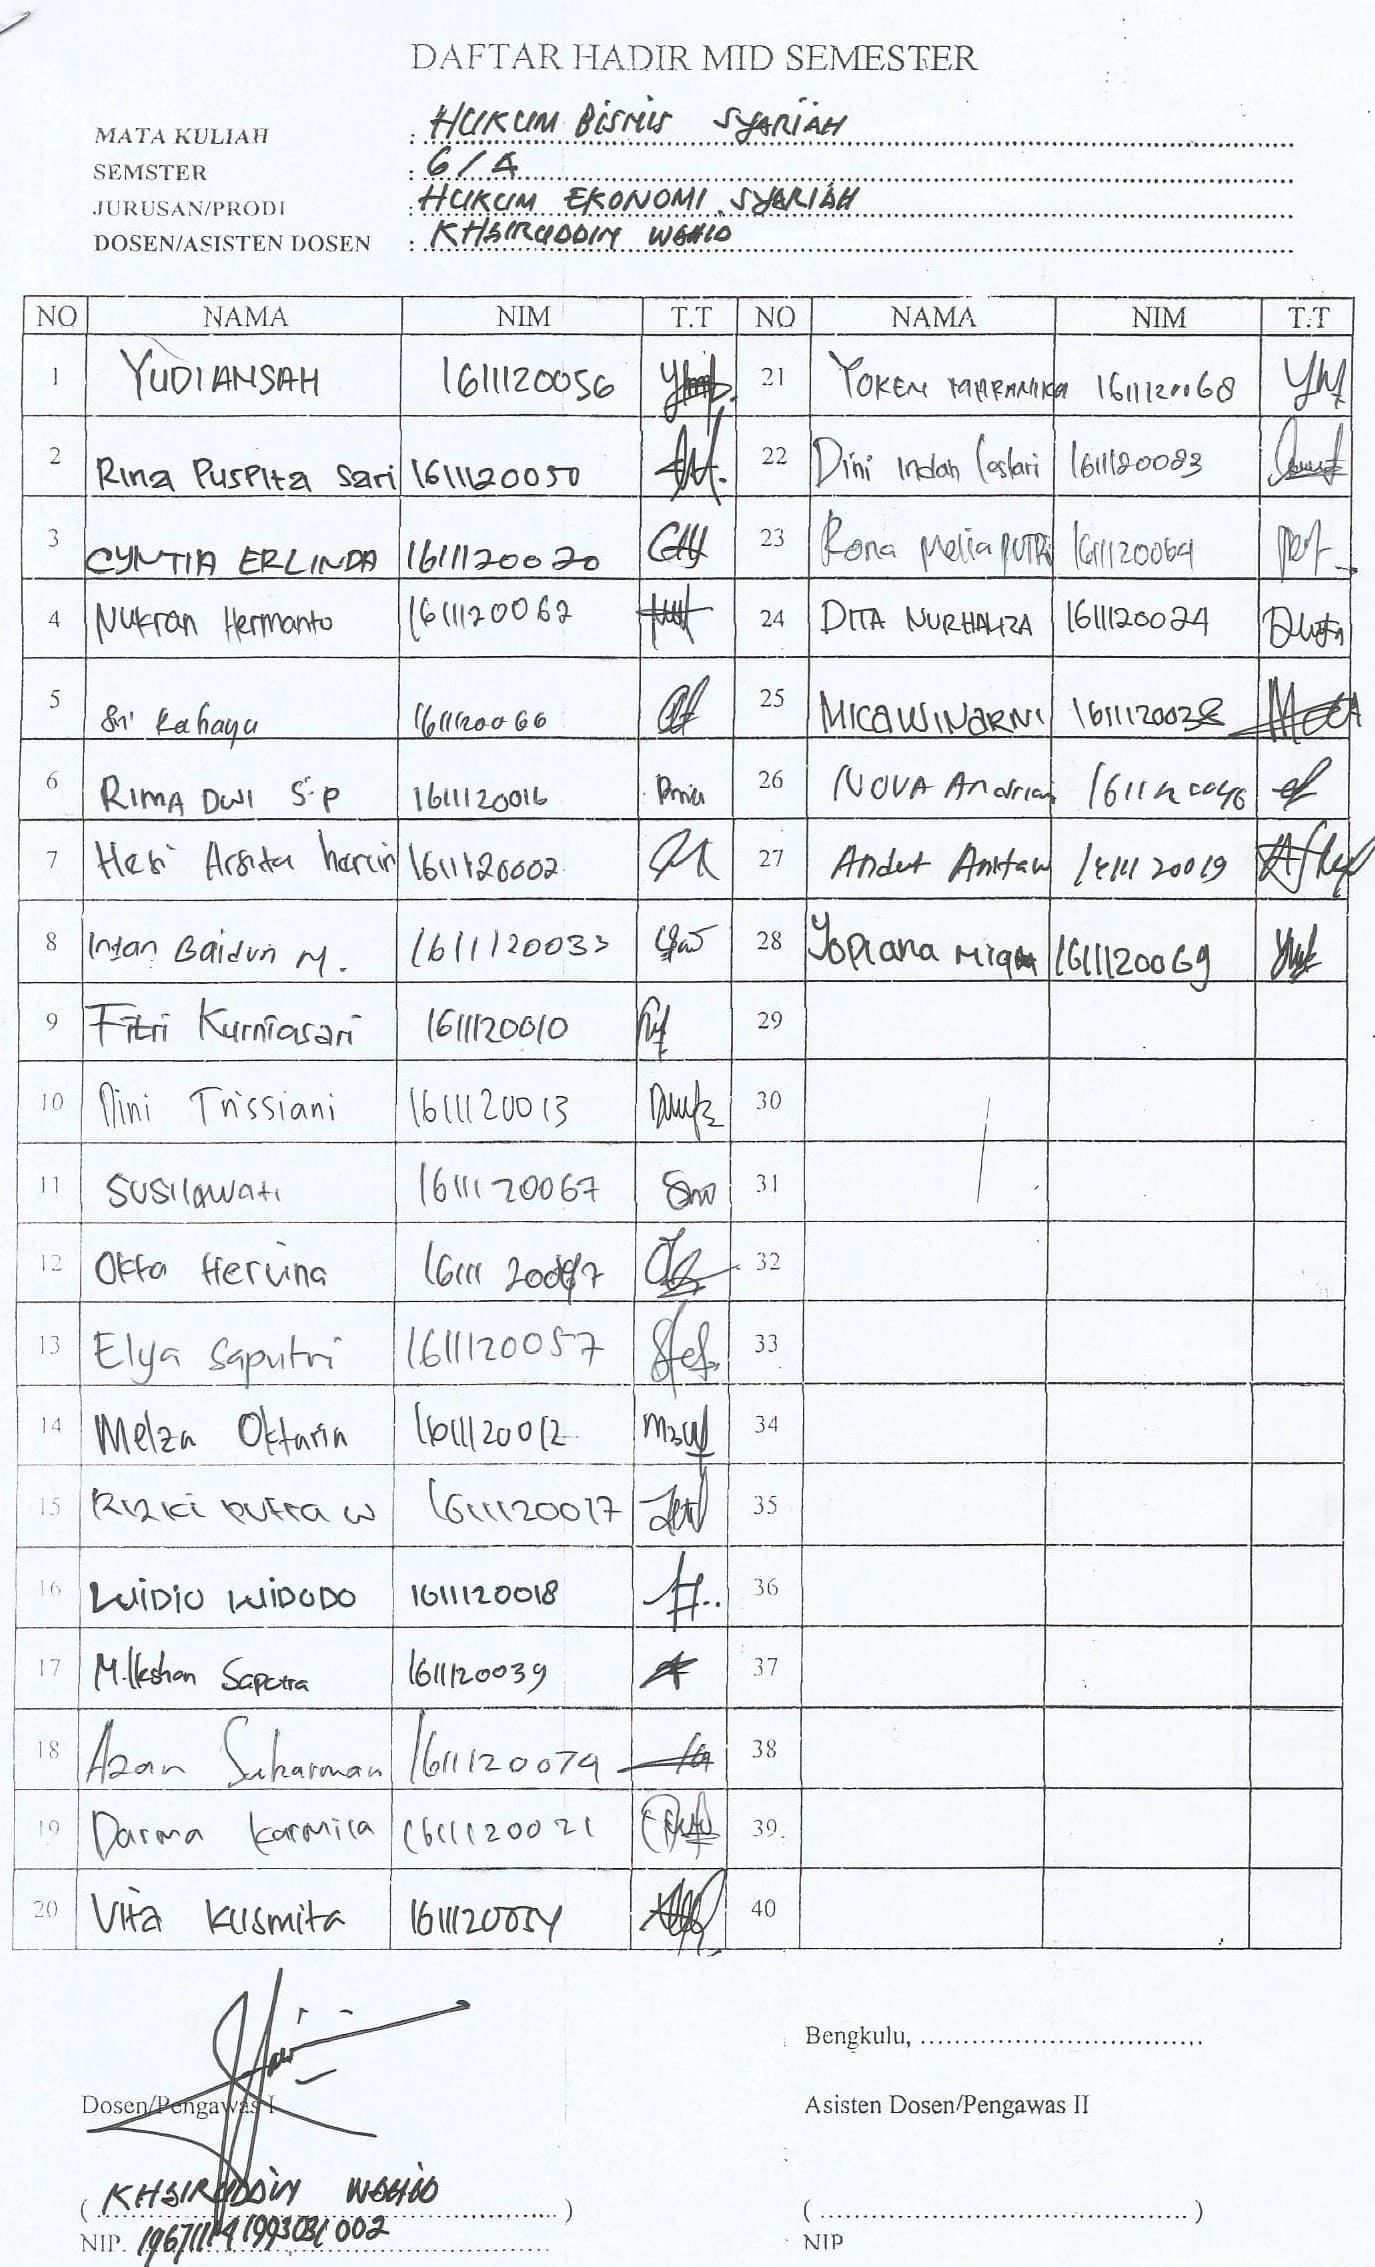 DAFTAR HADIR MID SEMESTER
MATA KULIAH : HUKUM BISNIS SYARIAH
SEMSTER : 6 / A
JURUSAN/PRODI : HUKUM EKONOMI SYARIAH
DOSEN/ASISTEN DOSEN : KHAIRUDDIN WAHID
NO NAMA NIM T.T NO NAMA NIM T.T
1 YUDIANSAH 1611120056 21 YOKEN 1611120068
2 Rina Puspita Sari 1611120050 22 Dini Indah Lestari 1611120083
3 CYNTIA ERLINDA 1611120020 23 Rona Melia PUTRI 1611120064
4 Nukran Hermanto 1611120062 24 DITA NURHALIZA 1611120024
5 Sri Rahayu 1611120066 25 MICA WINARNI 1611120028
6 RIMA DWI S.P 1611120016 26 NOVA Andrian
7 Hesi Arsita 1611120002 27
8 Intan Baidun M. 1611120033 28 Yopiana 1611120069
9 Fitri Kurniasari 1611120010 29
10 Dini Trissiani 1611120013 30
11 SUSILAWATI 1611120067 31
12 Okta Hervina 32
13 Elya Saputri 1611120057 33
14 Melza Oktarin 1611120012 34
15 RIZKI PUTRA W 1611120017 35
16 WIDIO WIDODO 1611120018 36
17 M.Ikshan Saputra 1611120039 37
18 Azan Sukarman 1611120079 38
19 Darma Karmila 1611120021 39.
20 Vita Kusmita 1611120054 40
Bengkulu, ..................................
Dosen/Pengawas I Asisten Dosen/Pengawas II
( KHAIRUDDIN WAHID ) ( .................................. )
NIP. 196711141993031002 NIP